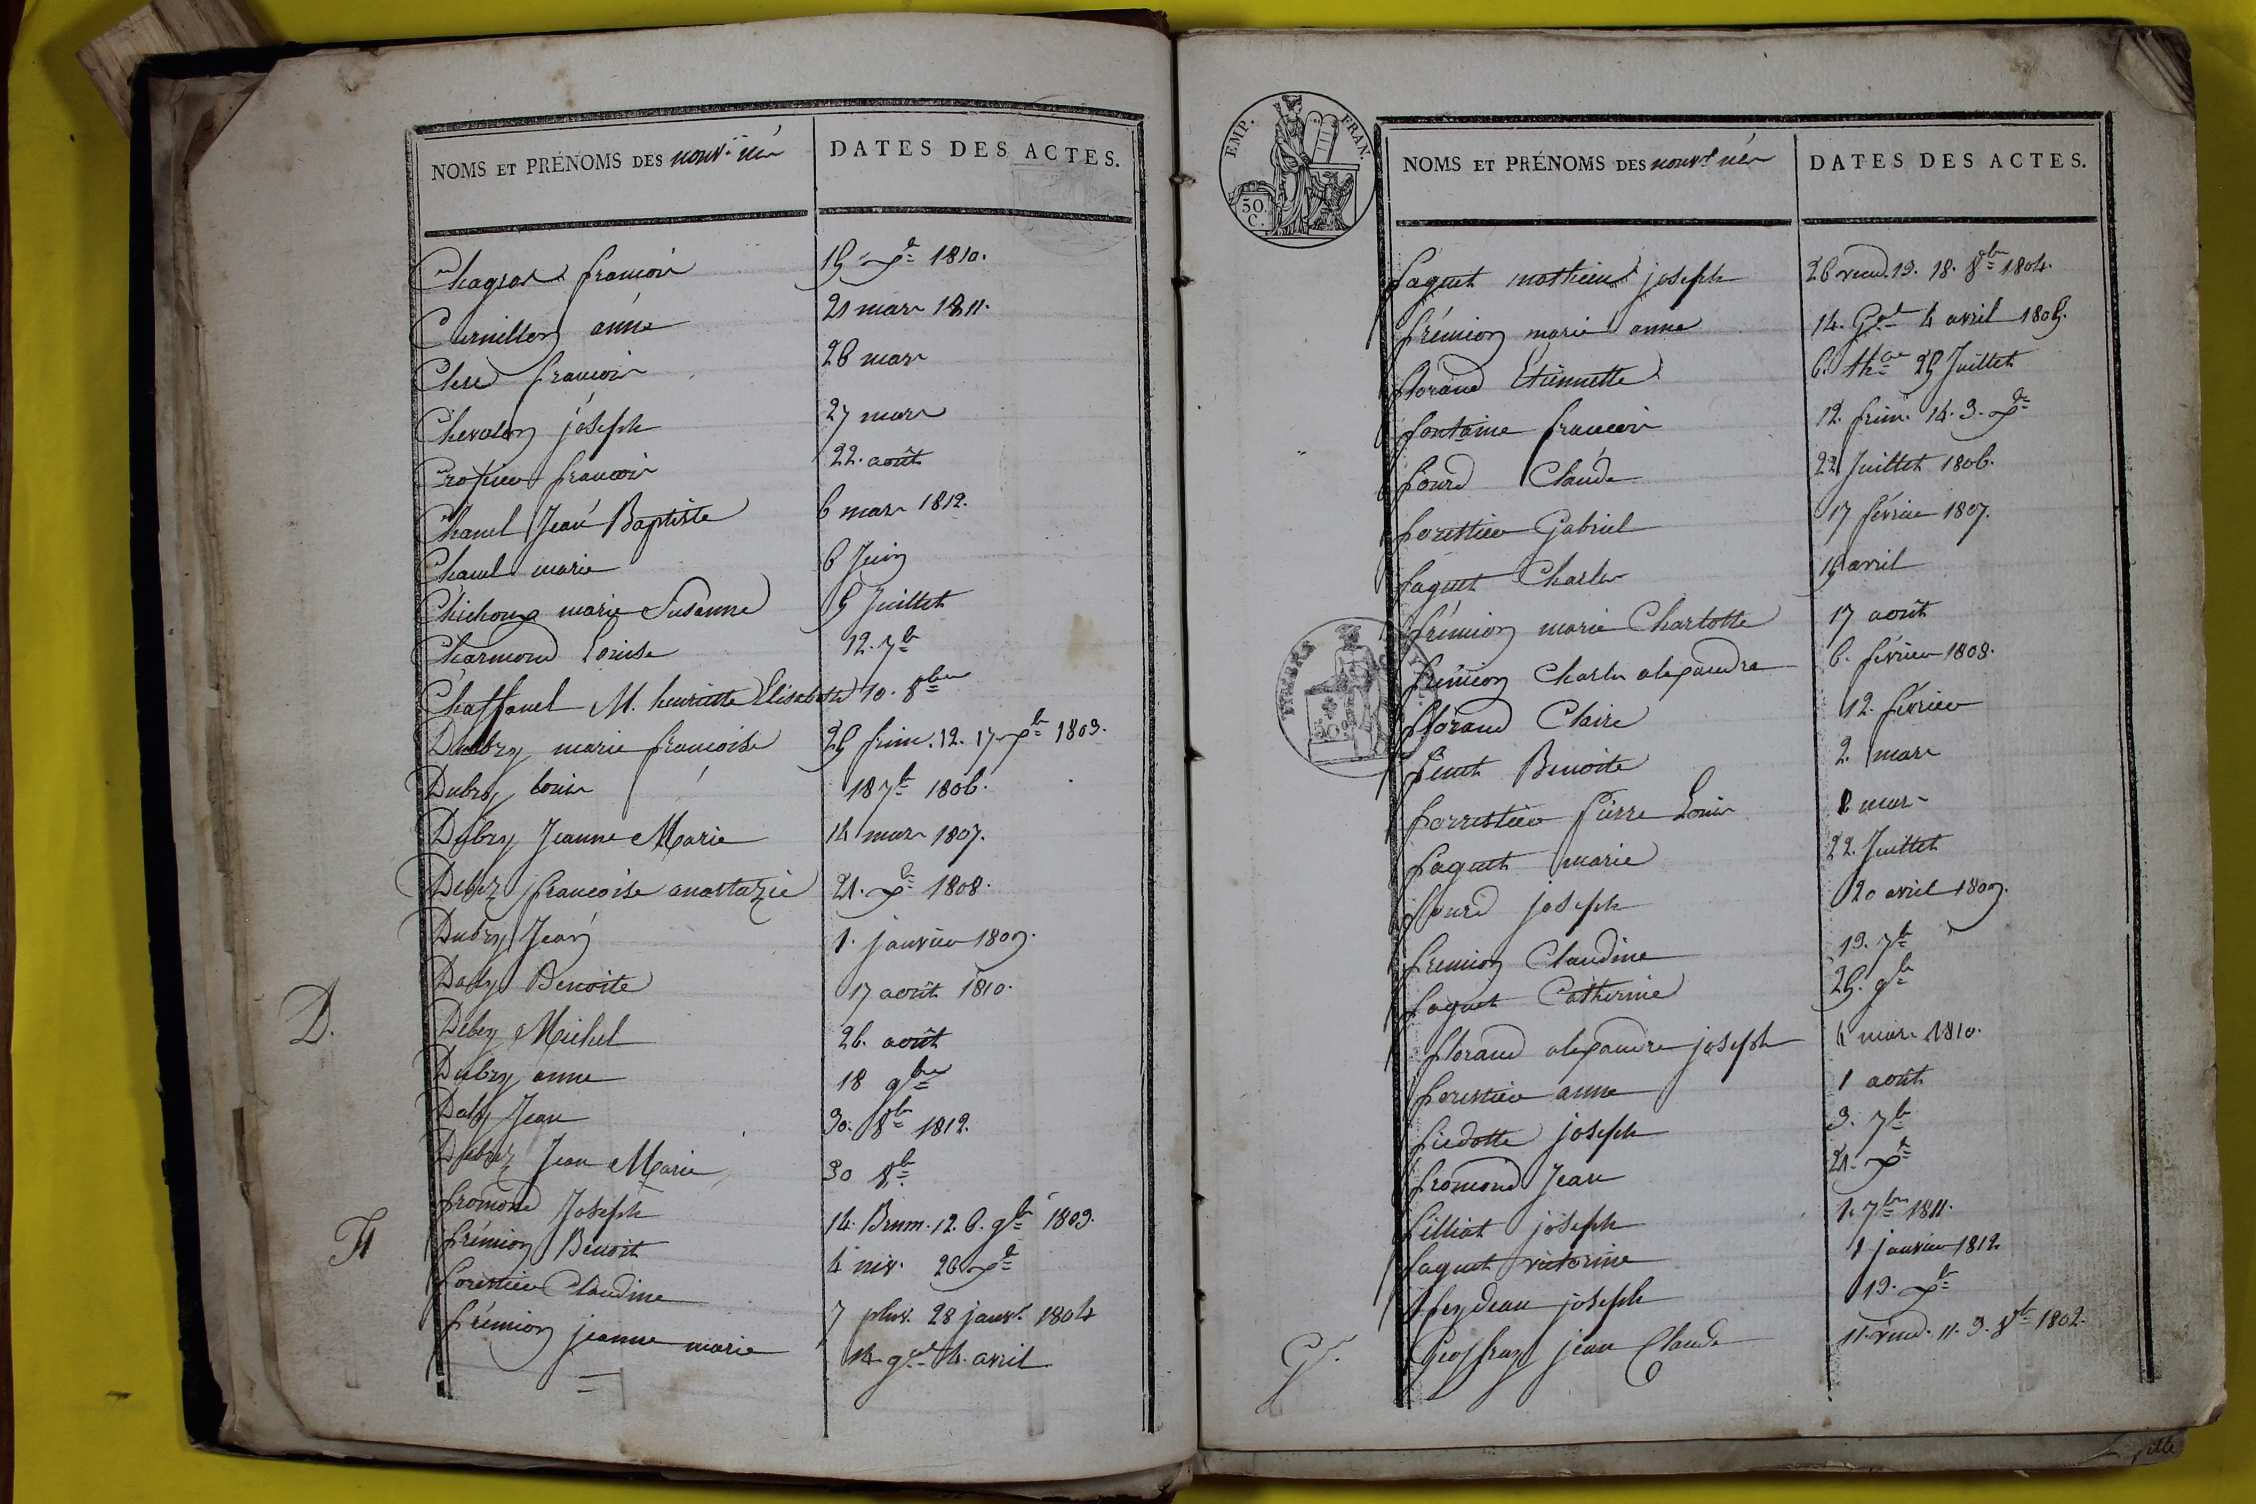 NOMS ET PRÉNOMS DES nouv. nés DATES DES ACTES.
françois 15 Xbre 1810.
Curnillon anne 21 mars 1811.
françois 26 mars
Chevalon joseph 27 mars
françois 22 août
Chanel Jean Baptiste 6 mars 1812.
Chanel marie 6 Juin
Chichoux marie Susanne 5 Juillet
Charmond Louise 12. 7bre
Chaffanel M. henriette Elisabeth 10. 8bre
Dubry marie françoise 25 frim. 12. 17 Xbre 1803.
Dubry Louis 18 7bre 1806.
Dubry Jeanne Marie 14 mars 1807.
françoise anastazie 21. Xbre 1808.
Dubry Jean 1. janvier 1809.
Daly Benoite 17 août 1810.
Michel 26. août
D.
Dubry anne 18 9bre
Daly Jean 30. 8bre 1812.
Jean Marie 30 8bre
fromond Joseph 14. Brum. 12. 6. 9bre 1803.
F
frémion Benoit 4 niv. 26 Xbre
forestier Claudine 7 pluv. 28 janvr. 1804
frémion jeanne marie 14 gal 4. avril
EMP. FRAN.
50. C.
NOMS ET PRÉNOMS DES nouvt nés DATES DES ACTES.
faguet mathieu joseph 26 vend. 13. 18. 8bre 1804.
frémion marie anne 14. Gal 4 avril 1805.
florand Etiennette 6. thor 25 Juillet
fontaine françois 12. frim. 14. 3. Xbre
fourd Claude 22 Juillet 1806.
forestier Gabriel 17 février 1807.
faguet Charles 15 avril
frémion marie Charlotte 17 août
TIMBRE
frémion Charles alexandre 6. février 1808.
florand Claire 12. février
Benoite 2. mars
forrestier Pierre Louis 8 mars
faguet marie 22. Juillet
fourd joseph 20 avril 1809.
fremion Claudine 19. 7bre
faguet Catherine 25. 9bre
florand alexandre joseph 4 mars 1810.
forestier anne 1 août
joseph 3. 7bre
fromond Jean 21. Xbre
filliat joseph 1. 7bre 1811.
faguet victorine 1 janvier 1812
feydeau joseph 19. Xbre
G.
Geoffray jean Claude 11. vend. 11. 3. 8bre 1802.